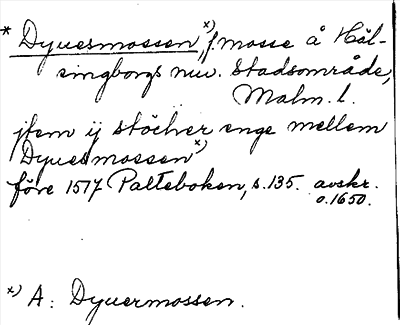 * Dyuesmossen,ˣ⁾ f. mosse å Häl-
singborgs nuv. stadsområde,
Malm. l.
jtem ij stöcher enge mellem
Dyuesmossenˣ⁾
före 1517 Palteboken, s. 135. avskr.
o. 1650.
ˣ⁾ A: Dyuermossen.